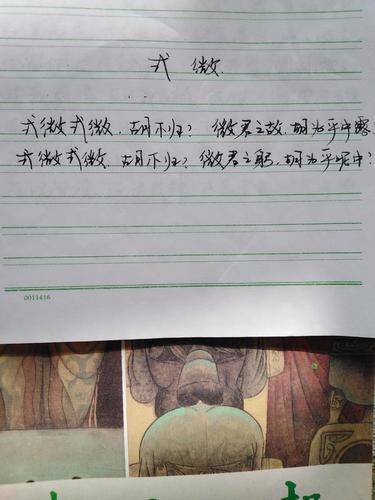 式 微
式微式微，胡不归？微君之故，胡为乎中露
式微式微，胡不归？微君之躬，胡为乎泥中？
0011416